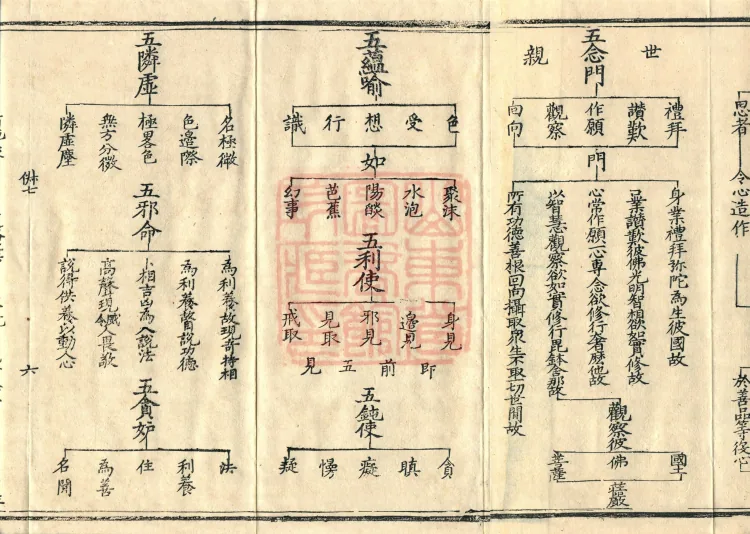 思者
令心造作
於善品等役心
世親
五念門
禮拜
讚歎
作願
觀察
回向
門
身業禮拜弥陀為生彼國故
口業讚歎彼佛光明智相欲如實修故
心常作願一心專念欲修行奢摩他故
以智慧觀察欲如實修行毘鉢舍那故
所有功德善根回向攝取衆生不取一切世間故
觀察彼
國土
佛
菩薩
莊嚴
五蘊喻
色
受
想
行
識
如
聚沫
水泡
陽燄
芭蕉
幻事
五利使
身見
邊見
邪見
見取
戒取
即前五見
五鈍使
貪
瞋
癡
慢
疑
五隣虛
名極微
色邊際
極畧色
無方分微
隣虛塵
五邪命
為利養故現奇特相
為利養故自說功德
卜相吉凶為人說法
高聲現威令人畏敬
說得供養以動人心
五貪妒
法
利養
住
為善
名聞
六